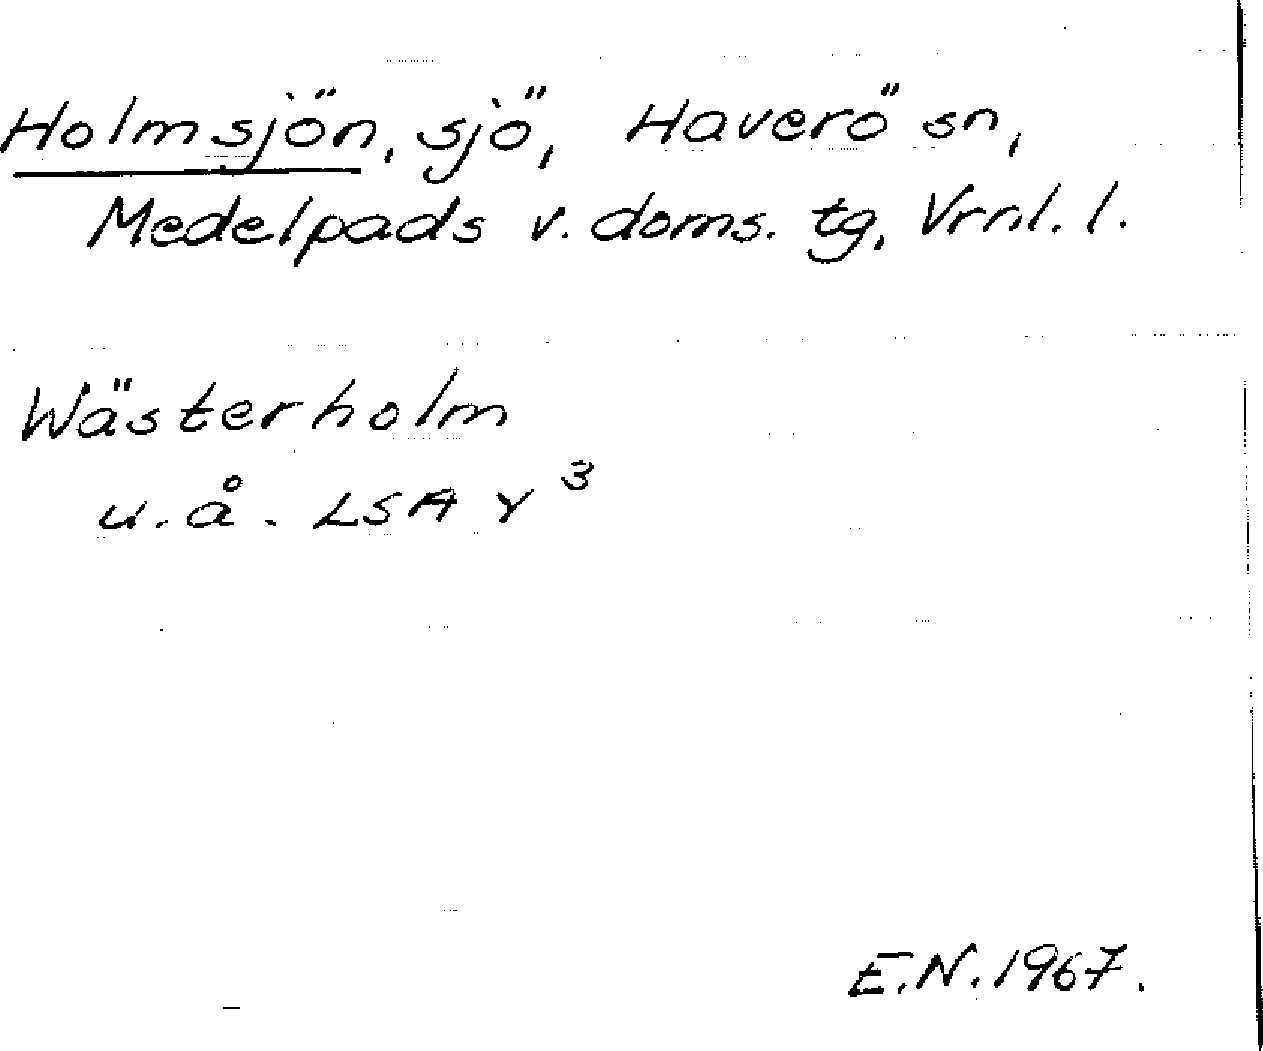 Holmsjön, sjö, Haverö sn,
Medelpads v. doms. tg, Vrnl. l.
Wästerholm
u. å. LSA Y 3
E.N. 1967.